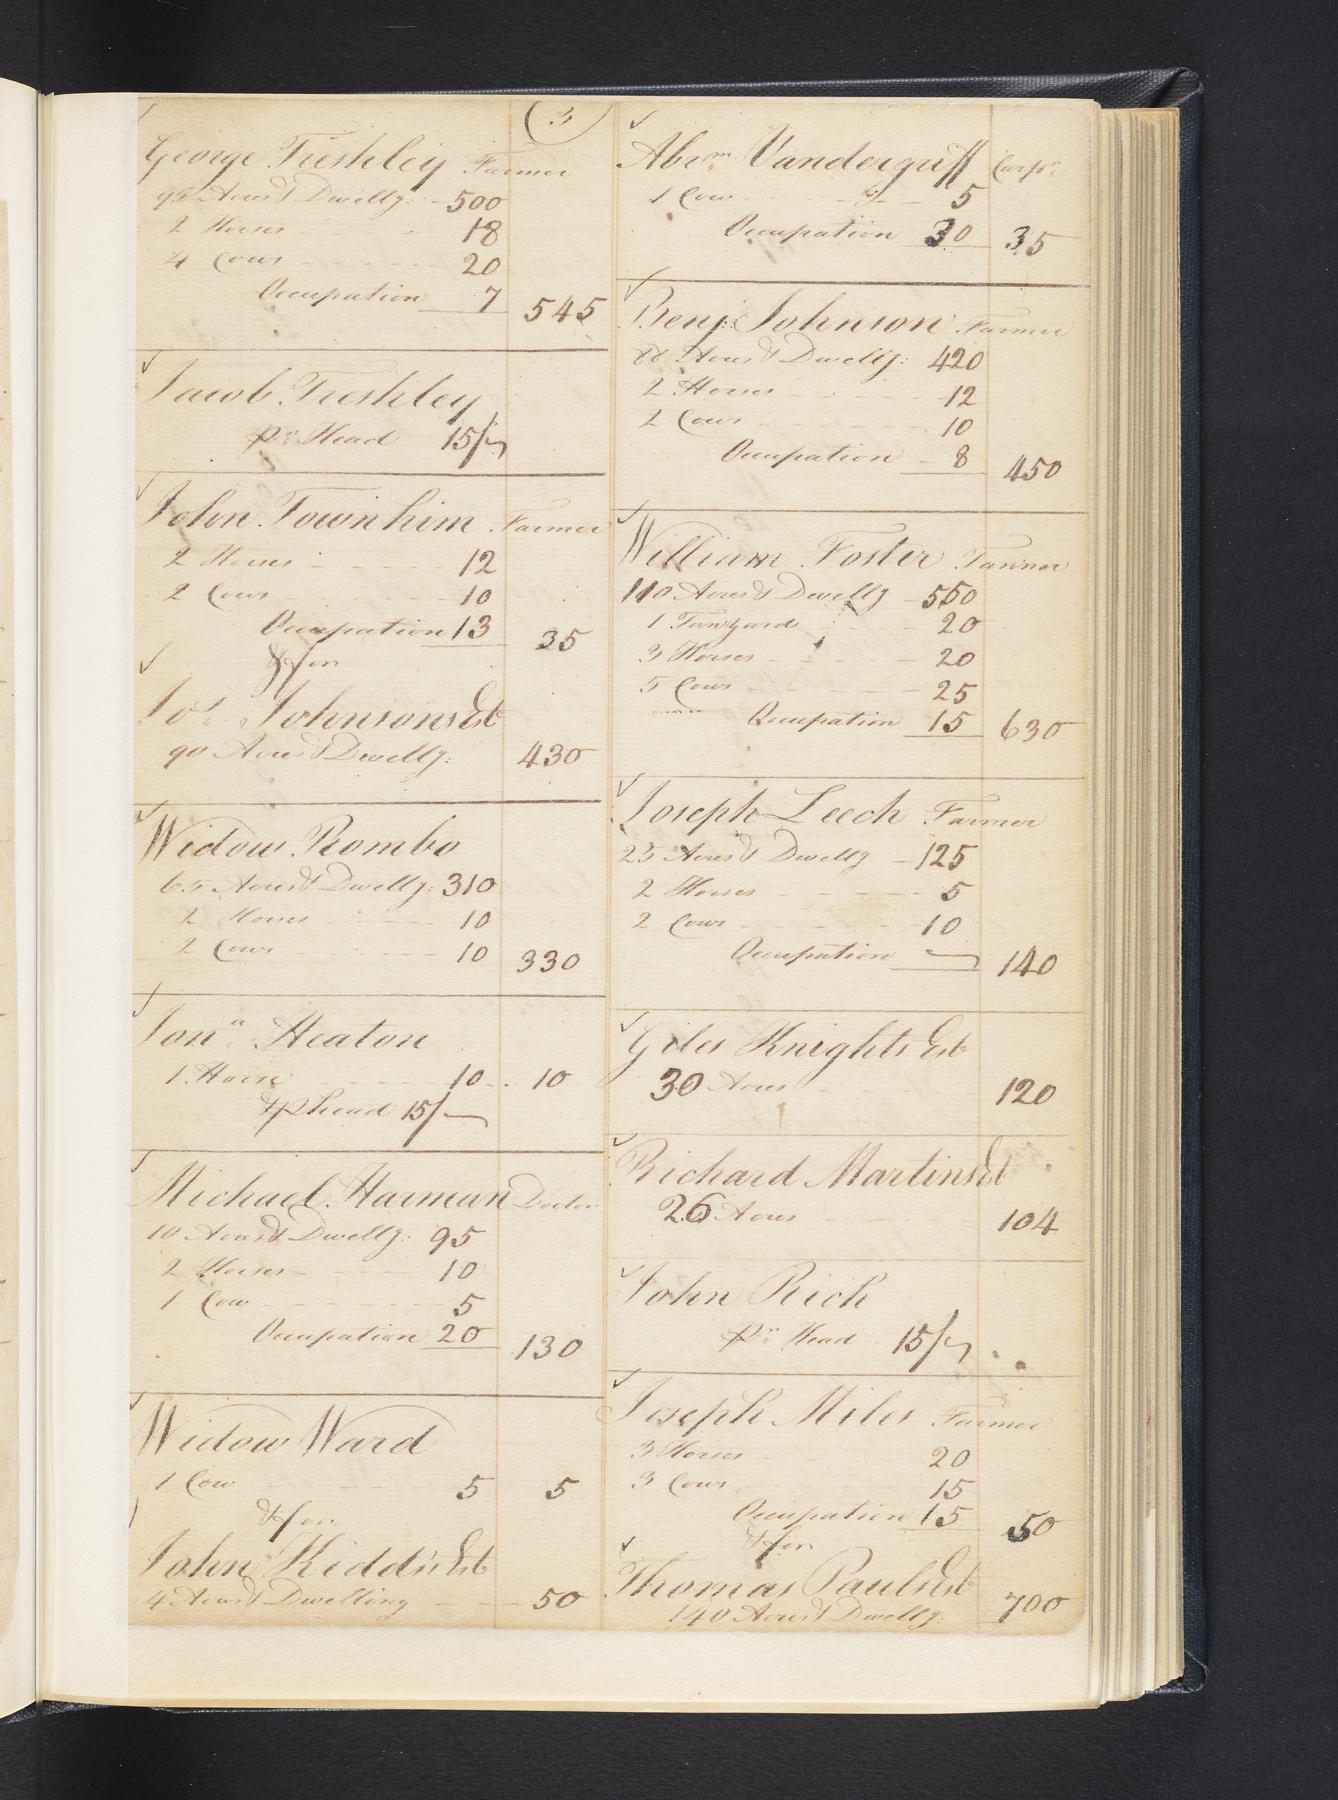 (3)
George Freshley Farmer
95 Acres & Dwellg: 500
2 Horses 18
4 Cows 20
Occupation 7 545
Jacob Freshley
Pr Head 15/
John Townhim Farmer
2 Horses 12
2 Cows 10
Occupation 13 35
& for
Jos. Johnsons Est
90 Acres & Dwellg: 430
Widow Rombo
65 Acres & Dwellg: 310
2 Horses 10
2 Cows 10 330
Jona Heaton
1 Horse 10 10
& P head 15/
Michael Harman Doctor
10 Acres & Dwellg: 95
2 Horses 10
1 Cow 5
Occupation 20 130
Widow Ward
1 Cow 5 5
& for
John Kidd's Est
4 Acres & Dwelling 50
Abrm Vandegruff Carpr
1 Cow 5
Occupation 30 35
Benj: Johnson Farmer
88 Acres & Dwellg: 420
2 Horses 12
2 Cows 10
Occupation 8 450
William Foster Tanner
110 Acres & Dwellg 550
1 Tanyard 20
3 Horses 20
5 Cows 25
Occupation 15 630
Joseph Leech Farmer
25 Acres & Dwellg 125
2 Horses 5
2 Cows 10
Occupation 140
Giles Knights Est
30 Acres 120
Richard Martins Est
26 Acres 104
John Rich
Pr Head 15/
Joseph Miles Farmer
3 Horses 20
3 Cows 15
Occupation 15 50
& for
Thomas Pauls Est
140 Acres & Dwellg: 700